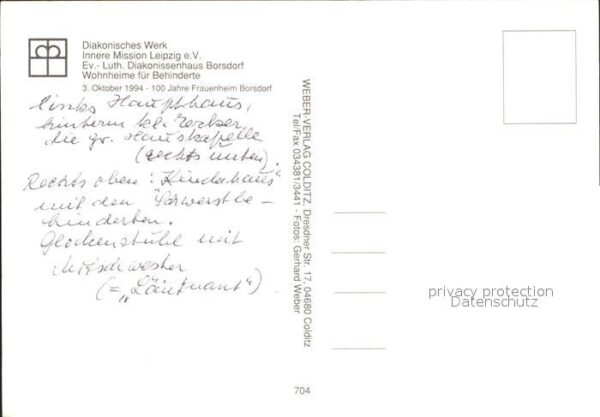 Diakonisches Werk
Innere Mission Leipzig e.V.
Ev.- Luth. Diakonissenhaus Borsdorf
Wohnheime für Behinderte
3. Oktober 1994 - 100 Jahre Frauenheim Borsdorf
links Haupthaus,
hinterm kl.
die gr. Hauskapelle
(rechts unten).
Rechts oben: "Kinderhaus"
mit den Schwerstbe-
hinderten.
Glockenstuhl mit
(= "Läutnant")
WEBER-VERLAG COLDITZ, Dresdner Str. 17, 04680 Colditz
Tel/Fax 034381/3441 - Fotos: Gerhard Weber
privacy protection
Datenschutz
704